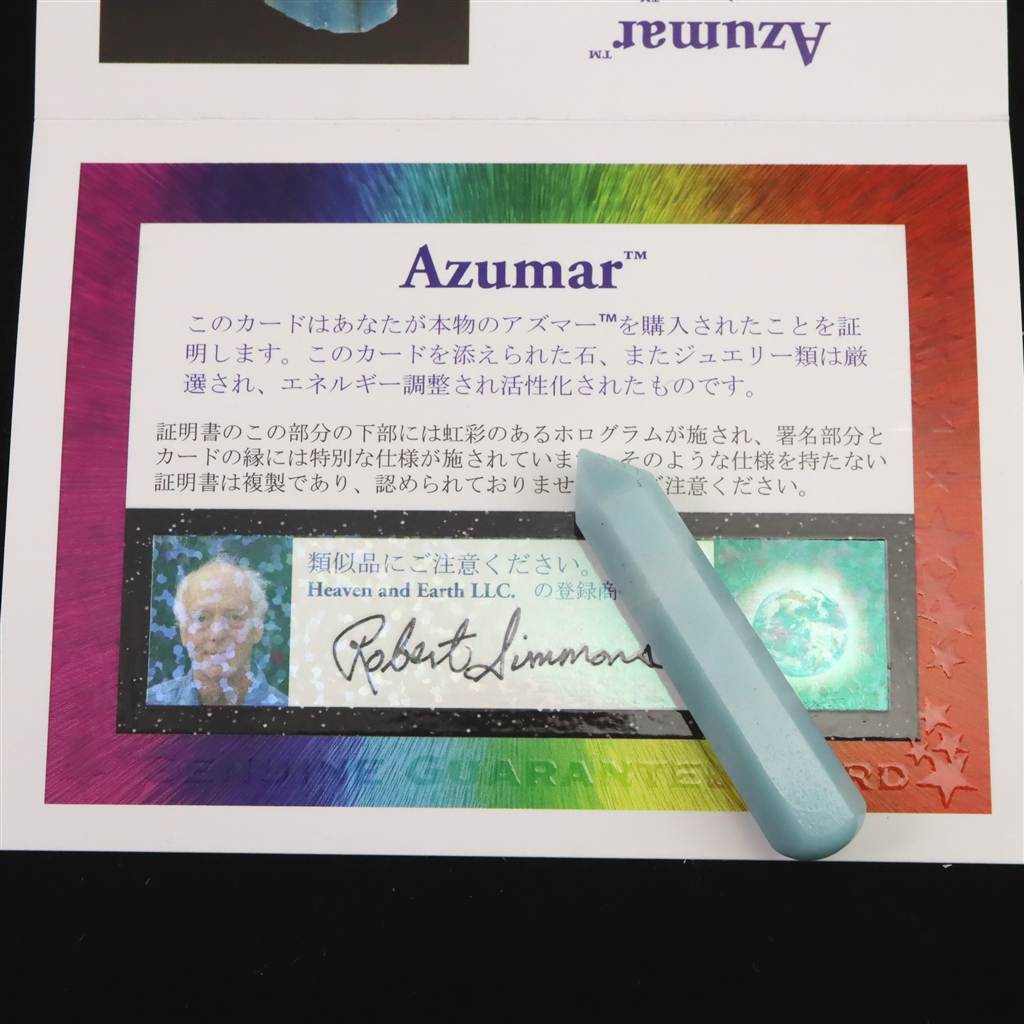 Azumar™
Azumar™
このカードはあなたが本物のアズマー™を購入されたことを証
明します。このカードを添えられた石、またジュエリー類は厳
選され、エネルギー調整され活性化されたものです。
証明書のこの部分の下部には虹彩のあるホログラムが施され、署名部分と
カードの縁には特別な仕様が施されていま そのような仕様を持たない
証明書は複製であり、認められておりませ ご注意ください。
類似品にご注意ください。
Heaven and Earth LLC. の登録商
Robert Simmons
GENUINE GUARANTEE